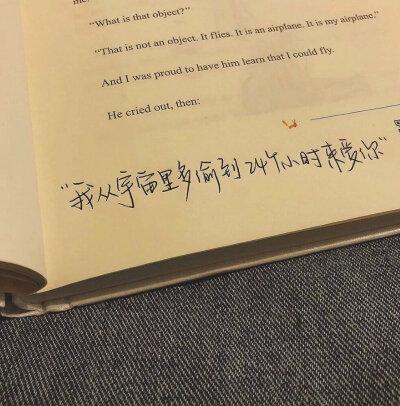 "What is that object?"
"That is not an object. It flies. It is an airplane. It is my airplane."
And I was proud to have him learn that I could fly.
He cried out, then:
"我从宇宙里多偷到24个小时来爱你"